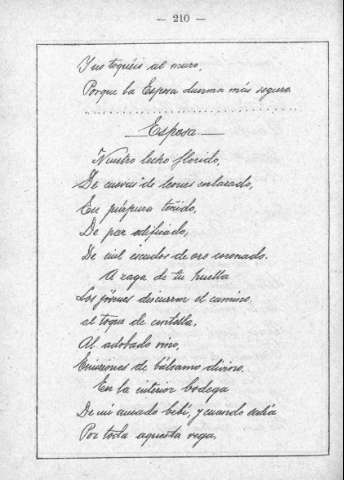 — 210 —
Y no toquéis al muro,
Porque la Esposa duerma más seguro.
Esposa
Nuestro lecho florido,
De cuevas de leones enlazado,
En púrpura teñido,
De paz edificado,
De mil escudos de oro coronado.
A zaga de tu huella
Los jóvenes discurren el camino
al toque de centella,
Al adobado vino,
Emisiones de bálsamo divino.
En la interior bodega
De mi amado bebí, y cuando salía
Por toda aquesta vega,